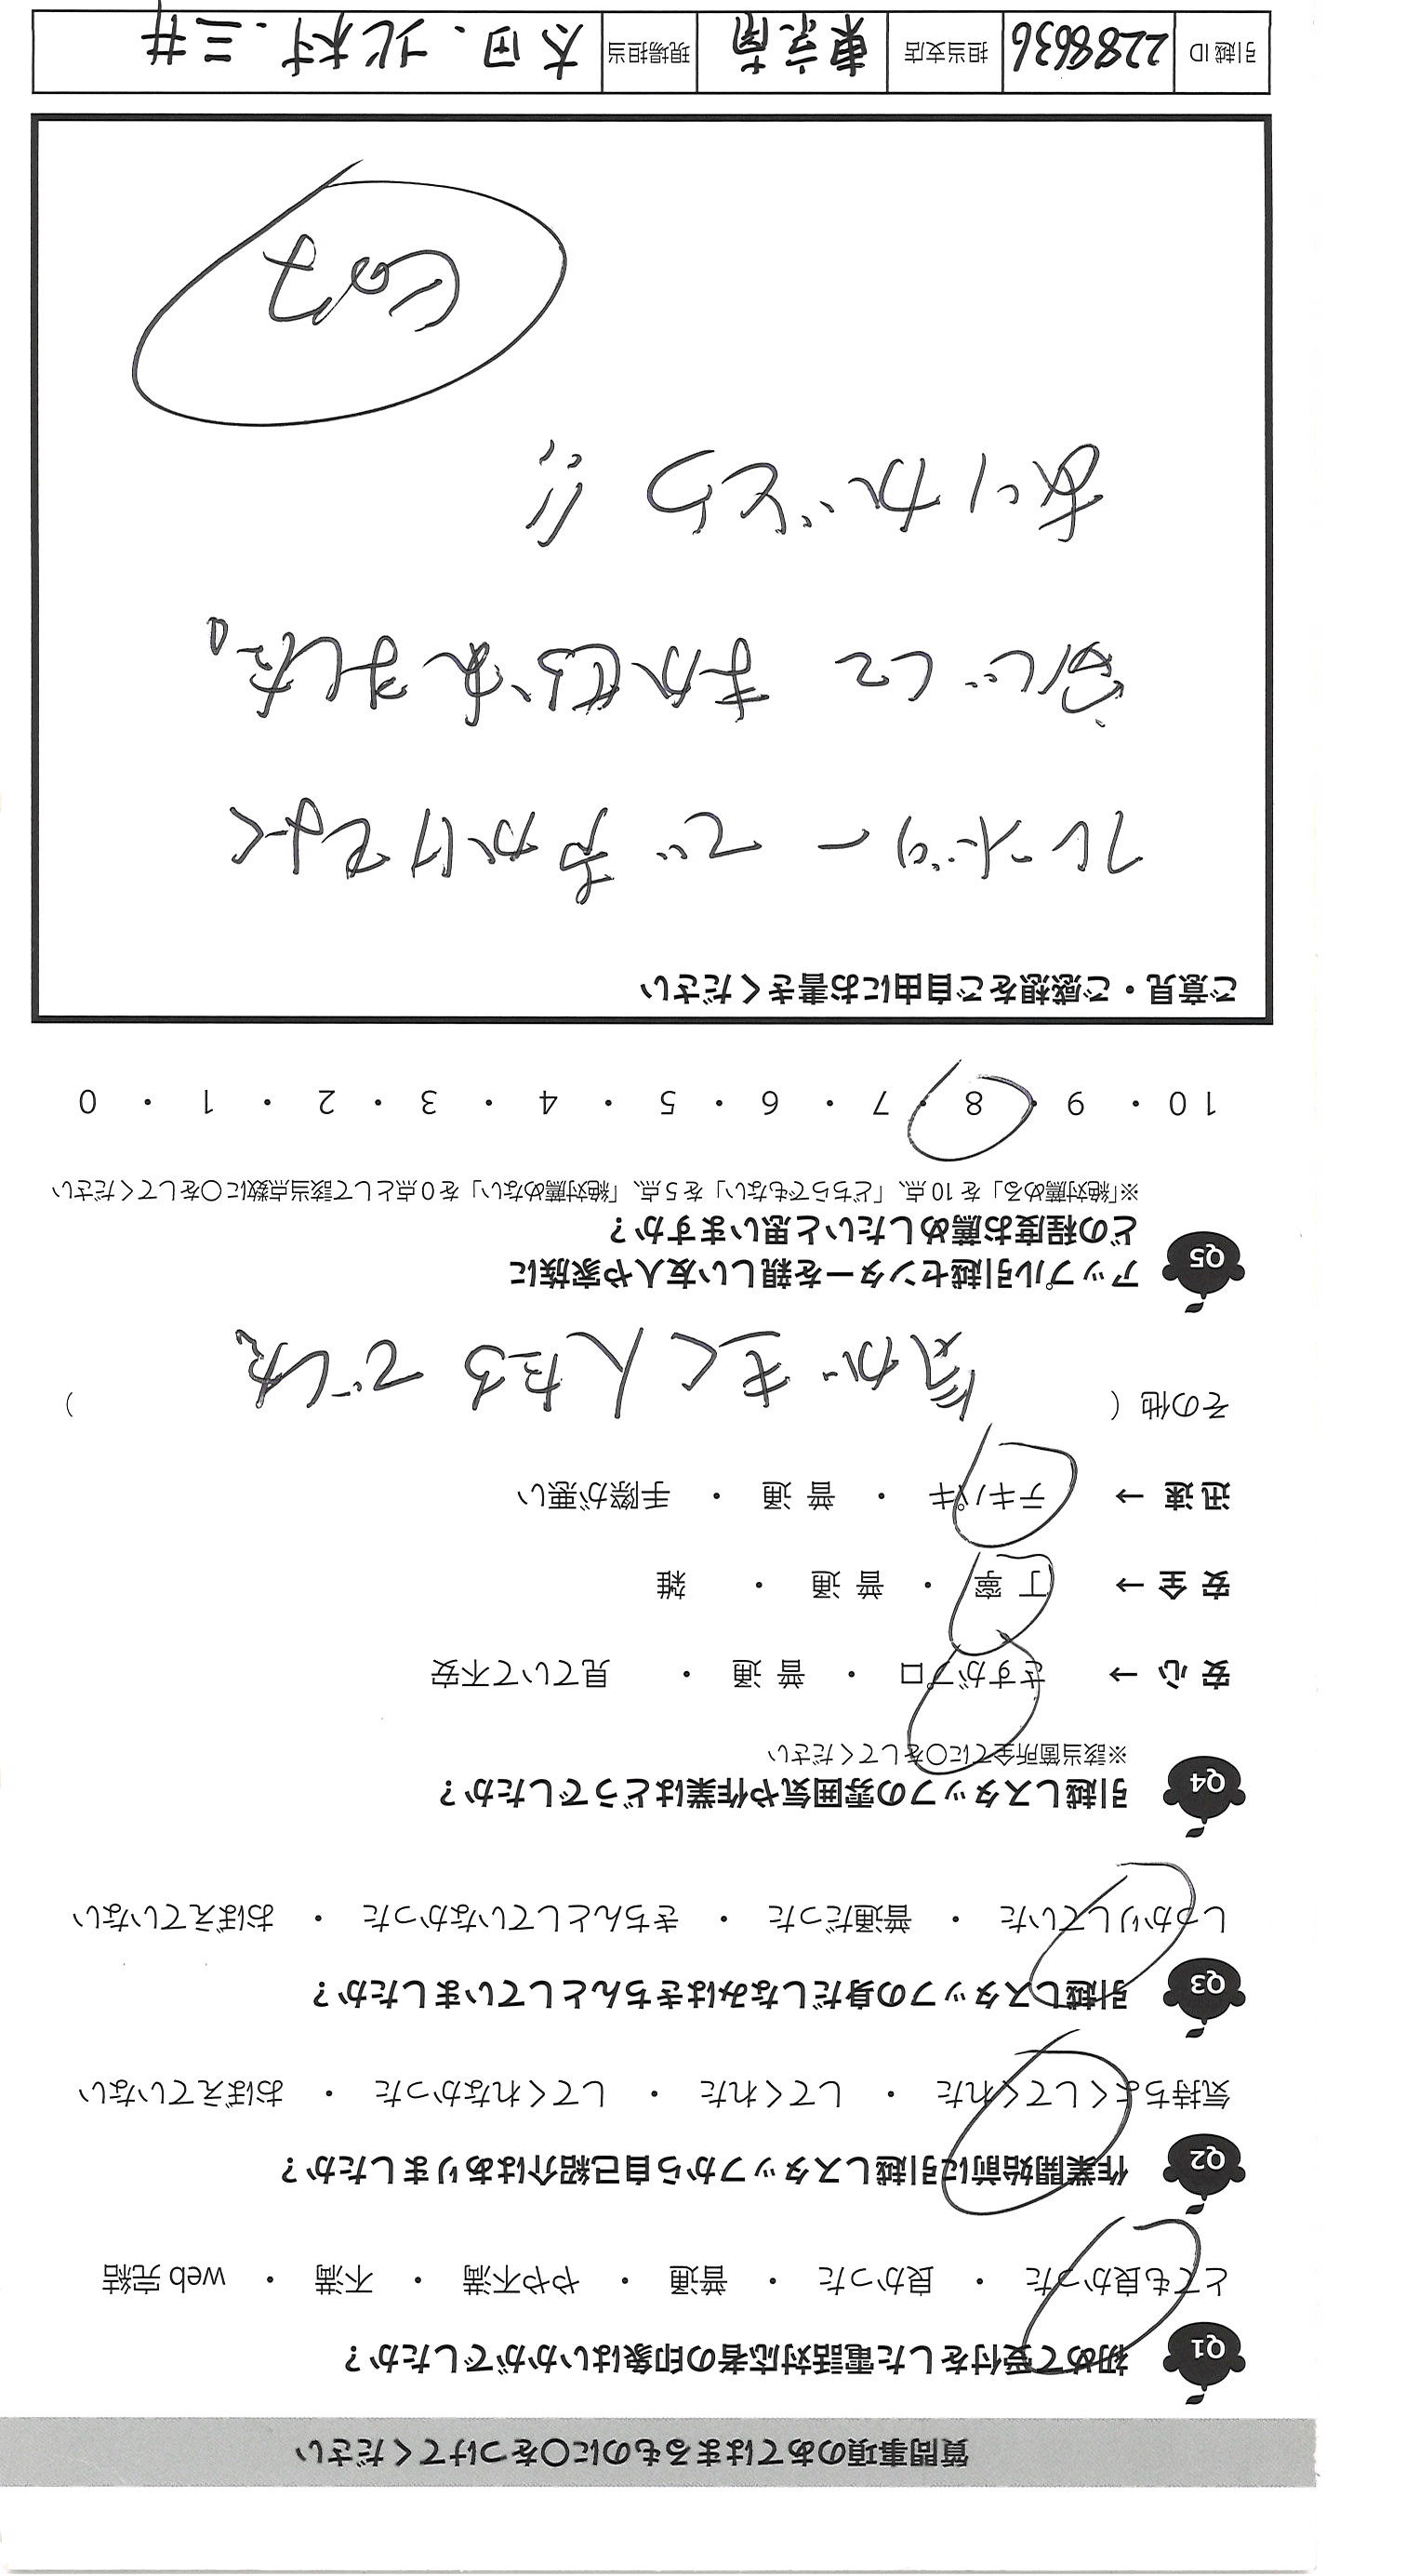 質問事項のあてはまるものに〇をつけてください
Q1 初めて受付をした電話対応者の印象はいかがでしたか？
とても良かった ・ 良かった ・ 普通 ・ やや不満 ・ 不満 ・ web 完結
Q2 作業開始前に引越しスタッフから自己紹介はありましたか？
気持ちよくしてくれた ・ してくれた ・ してくれなかった ・ おぼえていない
Q3 引越しスタッフの身だしなみはきちんとしていましたか？
しっかりしていた ・ 普通だった ・ きちんとしていなかった ・ おぼえていない
Q4 引越しスタッフの雰囲気や作業はどうでしたか？
※該当箇所全てに〇をしてください
安心 → さすがプロ ・ 普通 ・ 見ていて不安
安全 → 丁寧 ・ 普通 ・ 雑
迅速 → テキパキ ・ 普通 ・ 手際が悪い
その他 （ 気がきく人たちでした ）
Q5 アップル引越センターを親しい友人や家族に
どの程度お薦めしたいと思いますか？
※「絶対薦める」を 10 点、「どちらでもない」を 5 点、「絶対薦めない」を 0 点として該当点数に〇をしてください
10 ・ 9 ・ 8 ・ 7 ・ 6 ・ 5 ・ 4 ・ 3 ・ 2 ・ 1 ・ 0
ご意見・ご感想をご自由にお書きください
フレンドリーで声かけもよく
安心して まかせられました。
ありがとう !!
引越 ID 2288636 担当支店 東京南 現場担当 太田、北村、三井